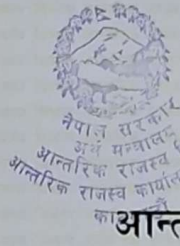 नेपाल सरकार
अर्थ मन्त्रालय
आन्तरिक राजस्व
आन्तरिक राजस्व कार्याल
का
आन्त